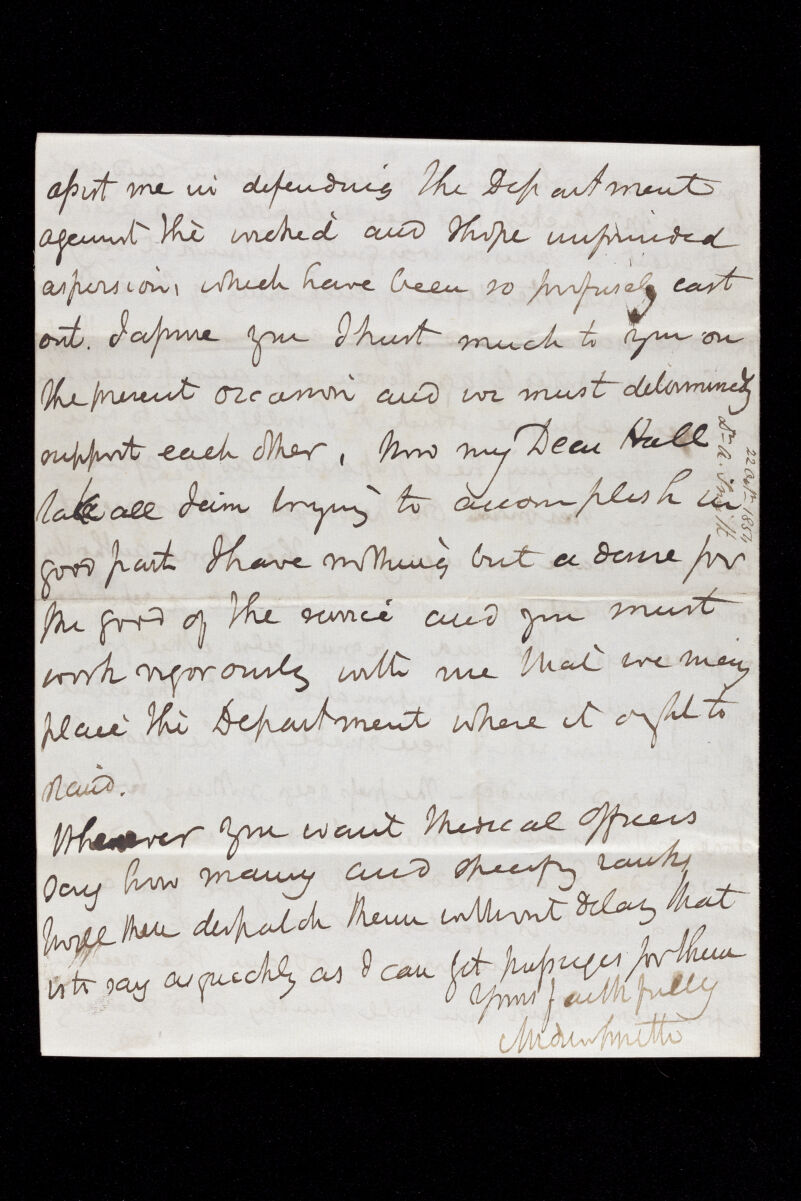 assist me in defending the Department
against the wicked and I hope unfounded
aspersions which have been so profusely cast
out. I assure you I trust much to you on
the present occasion and we must determinedly
support each other. Now my Dear Hall
take all I aim trying to accomplish in
good part I have nothing but a desire for
the good of the service and you must
work vigorously with me that we may
place the Department where it ought to
stand.
Whenever you want Medical Officers
say how many and specify ranks
I will then despatch them without delay that
is to say as quickly as I can get passages for them
Yours faithfully
A Smith
22 Octr 1854
Dr A. Smith